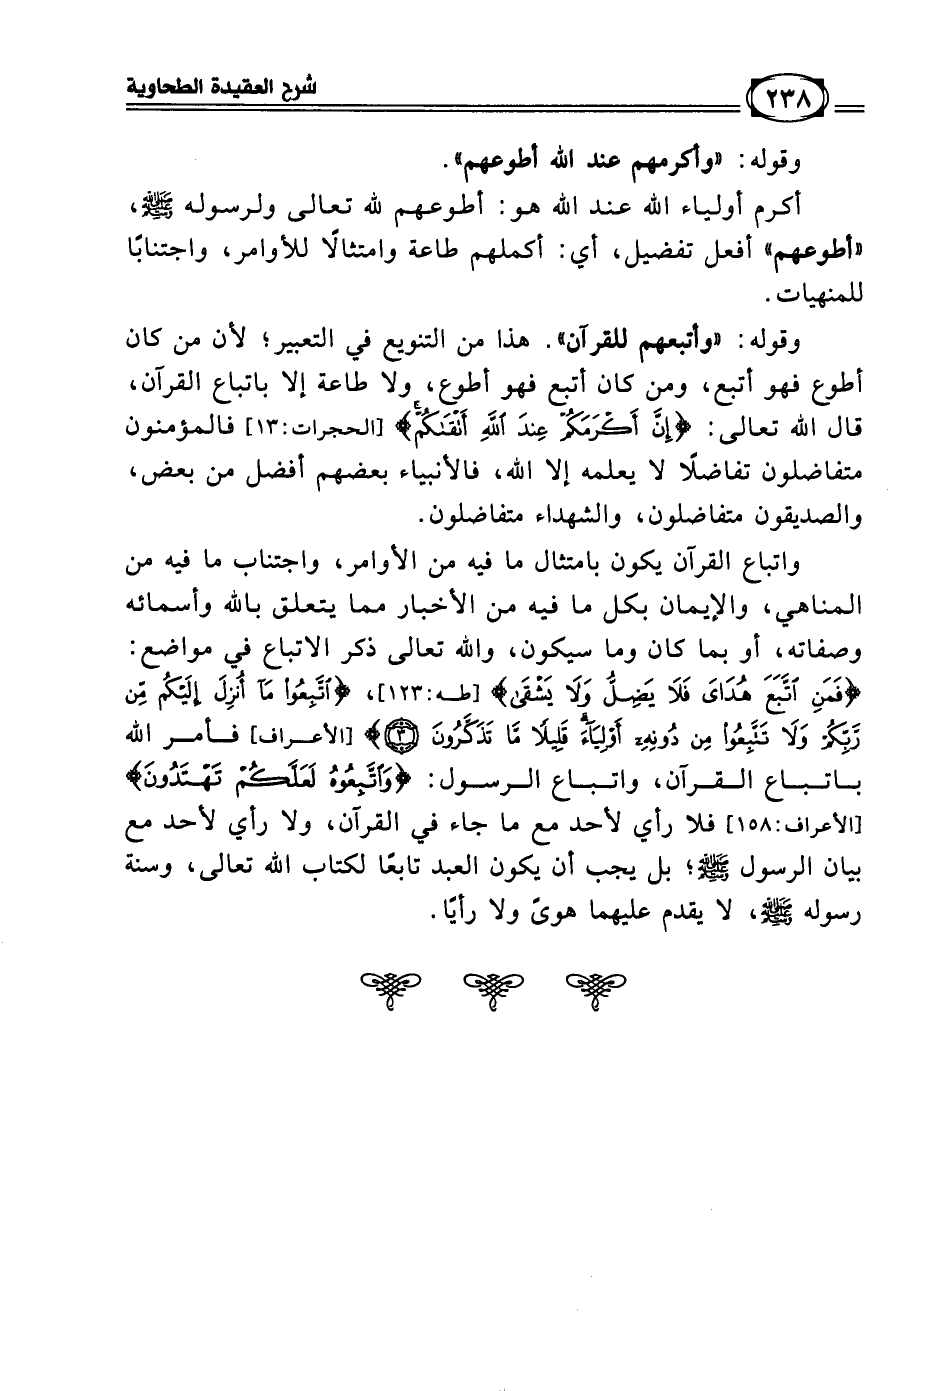 شرح العقيدة الطحاوية
٢٣٨
وقوله: «وأكرمهم عند الله أطوعهم».
أكرم أولياء الله عند الله هو: أطوعهم لله تعالى ولرسوله ﷺ،
«أطوعهم» أفعل تفضيل، أي: أكملهم طاعة وامتثالًا للأوامر، واجتنابًا
للمنهيات.
وقوله: «وأتبعهم للقرآن». هذا من التنويع في التعبير؛ لأن من كان
أطوع فهو أتبع، ومن كان أتبع فهو أطوع، ولا طاعة إلا باتباع القرآن،
قال الله تعالى: ﴿إِنَّ أَكْرَمَكُمْ عِندَ ٱللَّهِ أَتْقَىٰكُمْ ۚ﴾ [الحجرات:١٣] فالمؤمنون
متفاضلون تفاضلًا لا يعلمه إلا الله، فالأنبياء بعضهم أفضل من بعض،
والصديقون متفاضلون، والشهداء متفاضلون.
واتباع القرآن يكون بامتثال ما فيه من الأوامر، واجتناب ما فيه من
المناهي، والإيمان بكل ما فيه من الأخبار مما يتعلق بالله وأسمائه
وصفاته، أو بما كان وما سيكون، والله تعالى ذكر الاتباع في مواضع:
﴿فَمَنِ ٱتَّبَعَ هُدَاىَ فَلَا يَضِلُّ وَلَا يَشْقَىٰ﴾ [طه:١٢٣]، ﴿ٱتَّبِعُوا۟ مَآ أُنزِلَ إِلَيْكُم مِّن
رَّبِّكُمْ وَلَا تَتَّبِعُوا۟ مِن دُونِهِۦٓ أَوْلِيَآءَ ۗ قَلِيلًا مَّا تَذَكَّرُونَ ٣﴾ [الأعراف] فأمر الله
باتباع القرآن، واتباع الرسول: ﴿وَٱتَّبِعُوهُ لَعَلَّكُمْ تَهْتَدُونَ﴾
[الأعراف:١٥٨] فلا رأي لأحد مع ما جاء في القرآن، ولا رأي لأحد مع
بيان الرسول ﷺ؛ بل يجب أن يكون العبد تابعًا لكتاب الله تعالى، وسنة
رسوله ﷺ، لا يقدم عليهما هوىً ولا رأيًا.